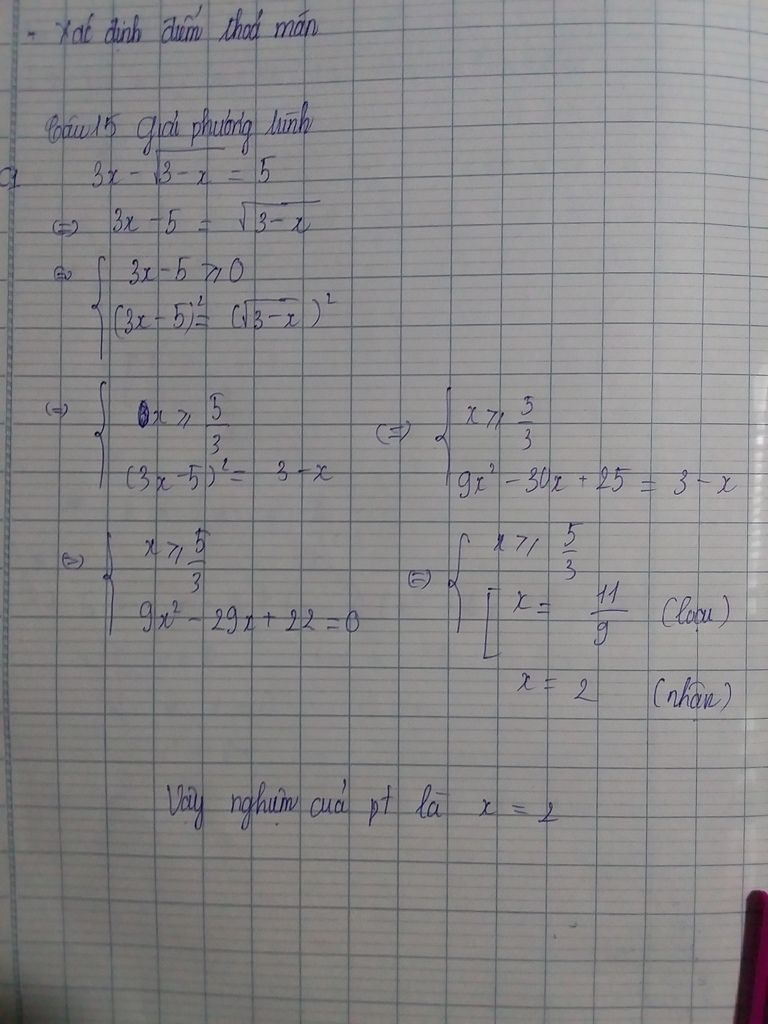 - Xác định điểm thoả mãn
Câu 15 Giải phương trình
C1 3x - √(3 - x) = 5
(=) 3x - 5 = √(3 - x)
(=) { 3x - 5 ⩾ 0
(3x - 5)² = (√(3 - x))²
(=) { x ⩾ 5/3
(3x - 5)² = 3 - x
(=) { x ⩾ 5/3
9x² - 30x + 25 = 3 - x
(=) { x ⩾ 5/3
9x² - 29x + 22 = 0
(=) { x ⩾ 5/3
[ x = 11/9 (loại)
x = 2 (nhận)
Vậy nghiệm của pt là x = 2